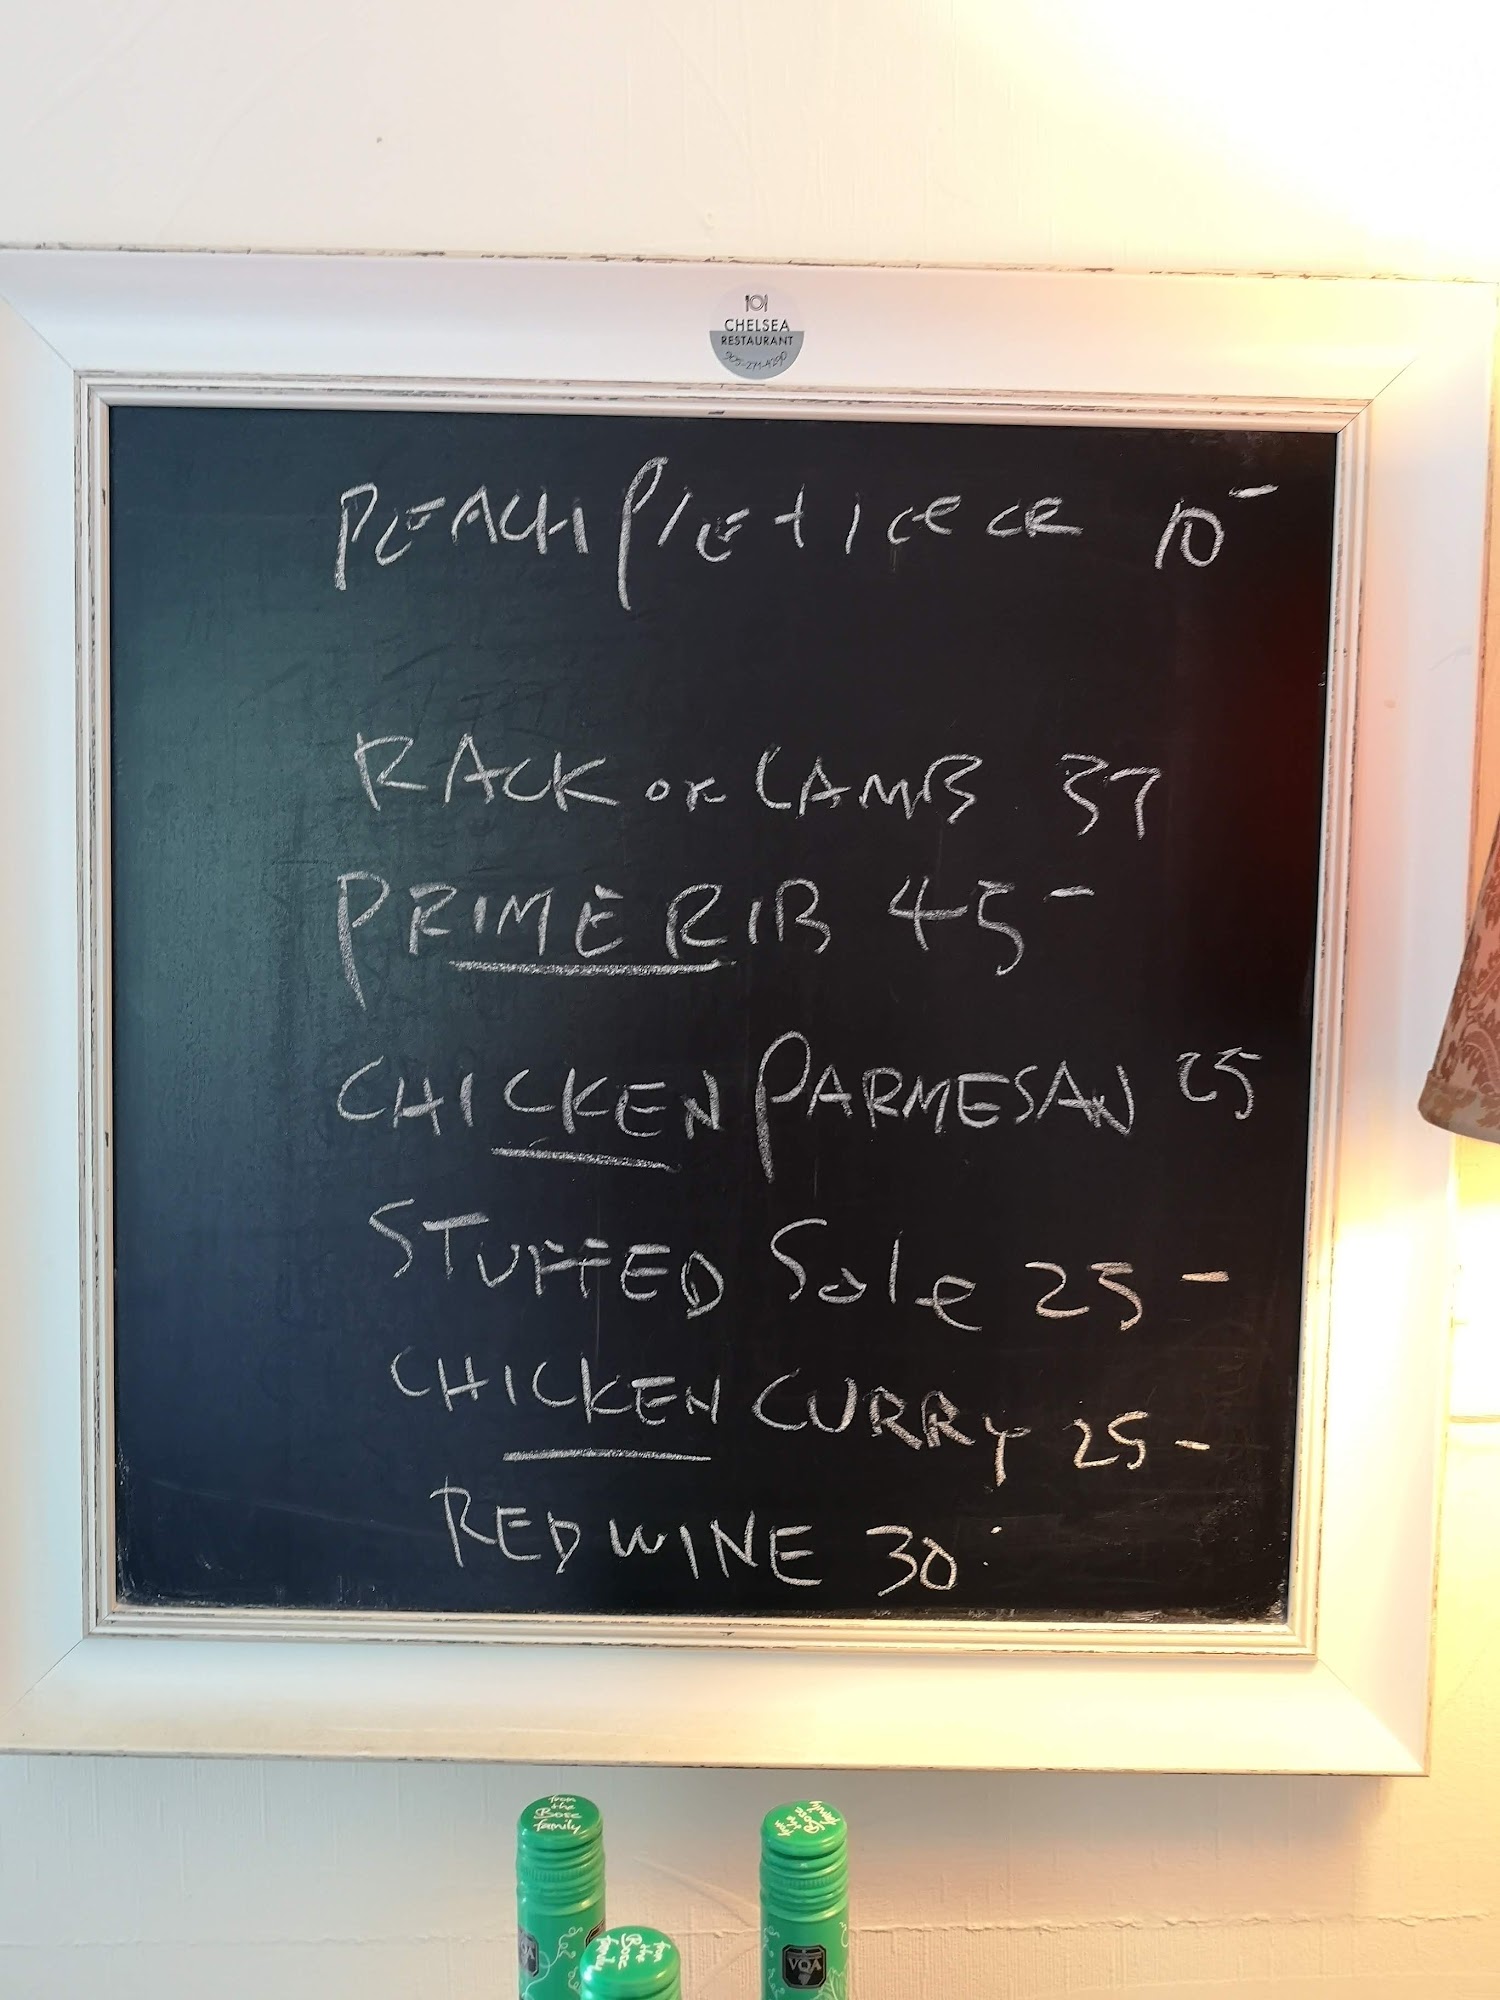 CHELSEA
RESTAURANT
PEACH PIE + ICE CR 10-
RACK OF LAMB 37
PRIME RIB 45-
CHICKEN PARMESAN 25
STUFFED Sole 25-
CHICKEN CURRY 25-
RED WINE 30
from the Bosc family
from the Bosc family
from the Bosc family
VQA
VQA